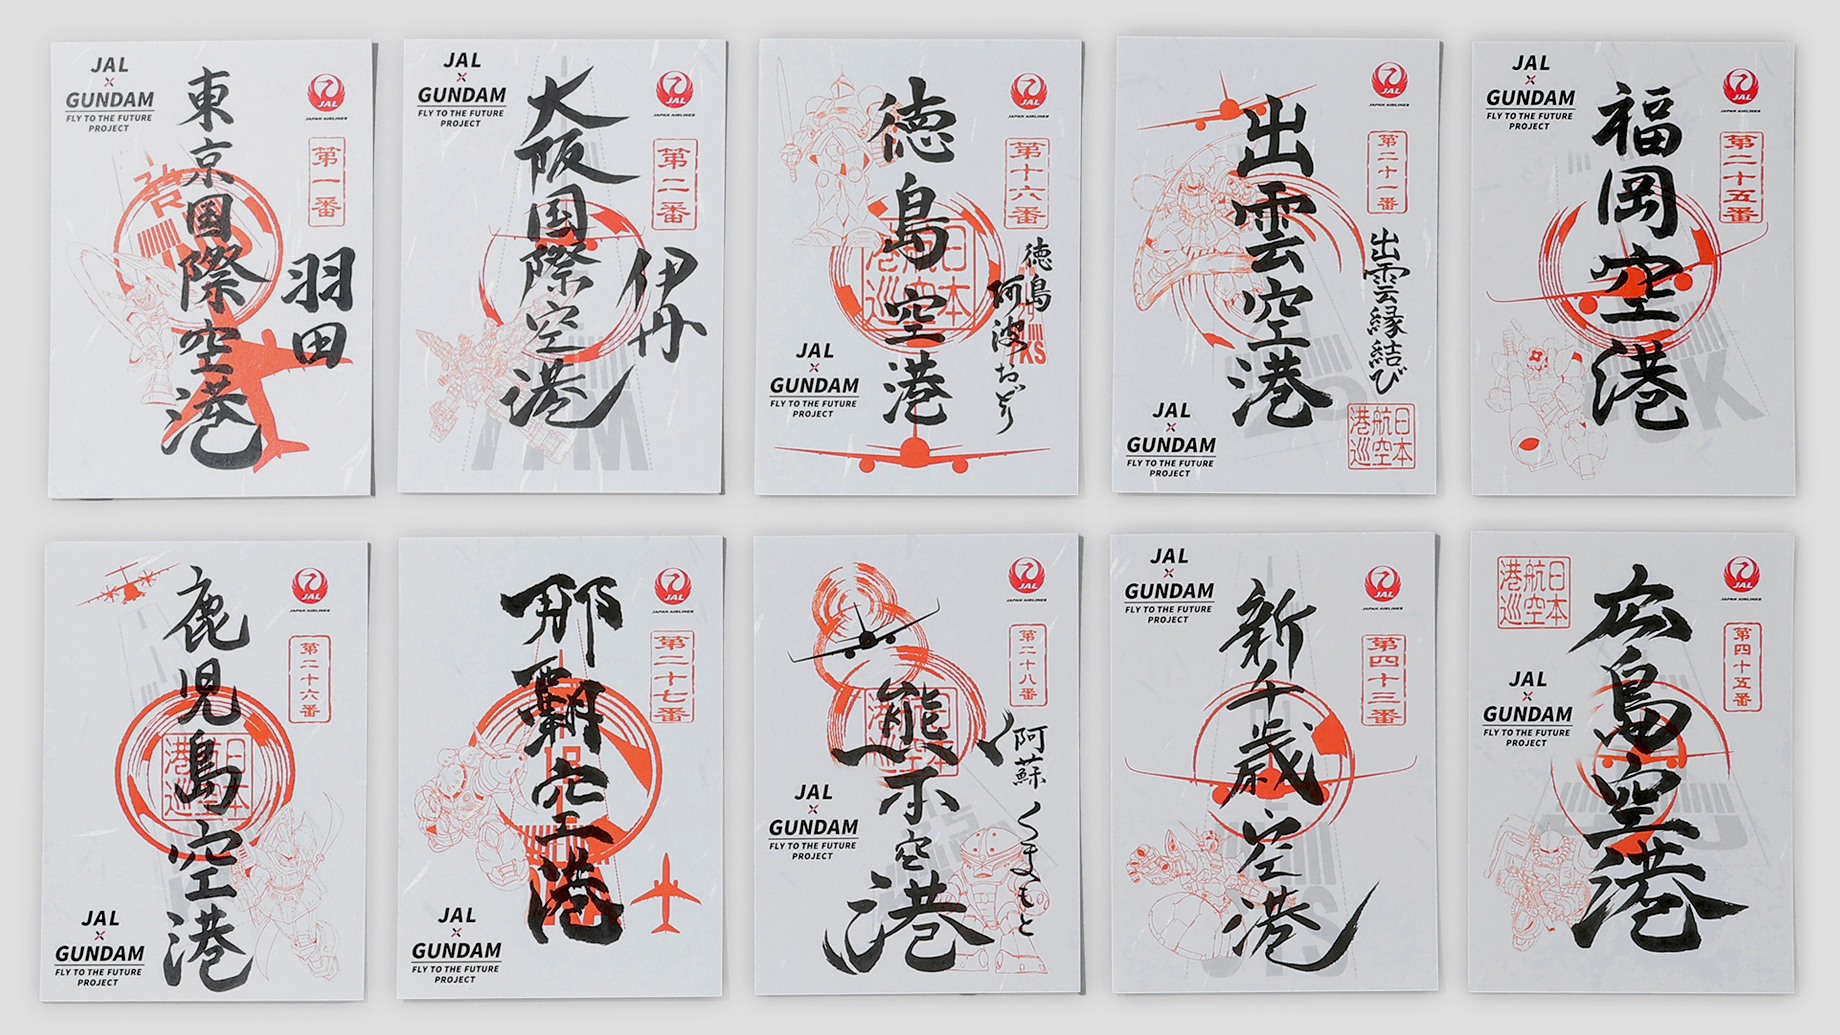 JAL
×
GUNDAM
FLY TO THE FUTURE
PROJECT
JAL
JAPAN AIRLINES
第一番
東京国際空港
羽田
JAL
×
GUNDAM
FLY TO THE FUTURE
PROJECT
JAL
JAPAN AIRLINES
第二番
大阪国際空港
伊丹
JAL
JAPAN AIRLINES
第十六番
徳島空港
徳島
阿波おどり
日本
航空
港巡
TKS
JAL
×
GUNDAM
FLY TO THE FUTURE
PROJECT
JAL
JAPAN AIRLINES
第二十一番
出雲空港
出雲縁結び
日本
航空
港巡
JAL
×
GUNDAM
FLY TO THE FUTURE
PROJECT
JAL
×
GUNDAM
FLY TO THE FUTURE
PROJECT
JAL
JAPAN AIRLINES
第二十五番
福岡空港
JAL
JAPAN AIRLINES
第二十六番
鹿児島空港
日本
航空
港巡
JAL
×
GUNDAM
FLY TO THE FUTURE
PROJECT
JAL
JAPAN AIRLINES
第二十七番
那覇空港
JAL
×
GUNDAM
FLY TO THE FUTURE
PROJECT
JAL
JAPAN AIRLINES
第二十八番
熊本空港
阿蘇くまもと
JAL
×
GUNDAM
FLY TO THE FUTURE
PROJECT
JAL
×
GUNDAM
FLY TO THE FUTURE
PROJECT
JAL
JAPAN AIRLINES
第四十三番
新千歳空港
日本
航空
港巡
JAL
JAPAN AIRLINES
第四十五番
広島空港
JAL
×
GUNDAM
FLY TO THE FUTURE
PROJECT